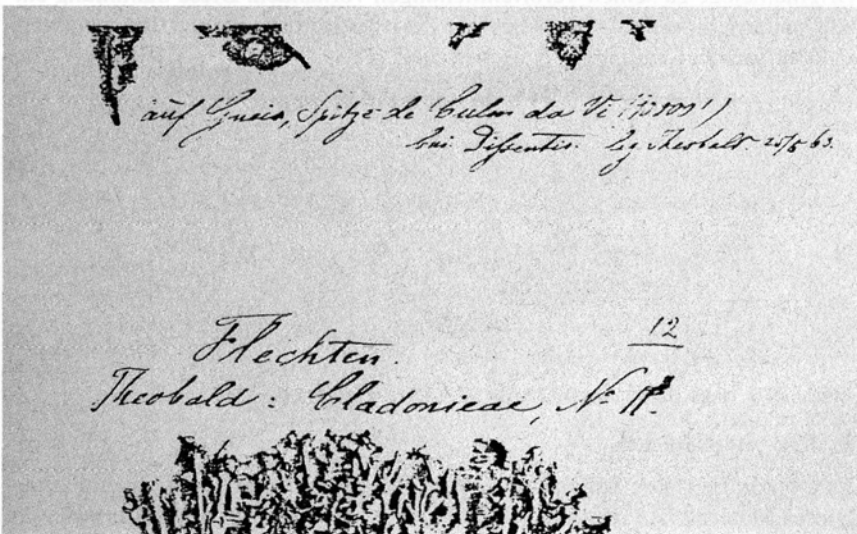 auf Gneis, Spitze de Culm da Vi
bei Dissentis. leg. Theobald. 25/5 63.
12
Flechten.
Theobald: Cladonieae, No